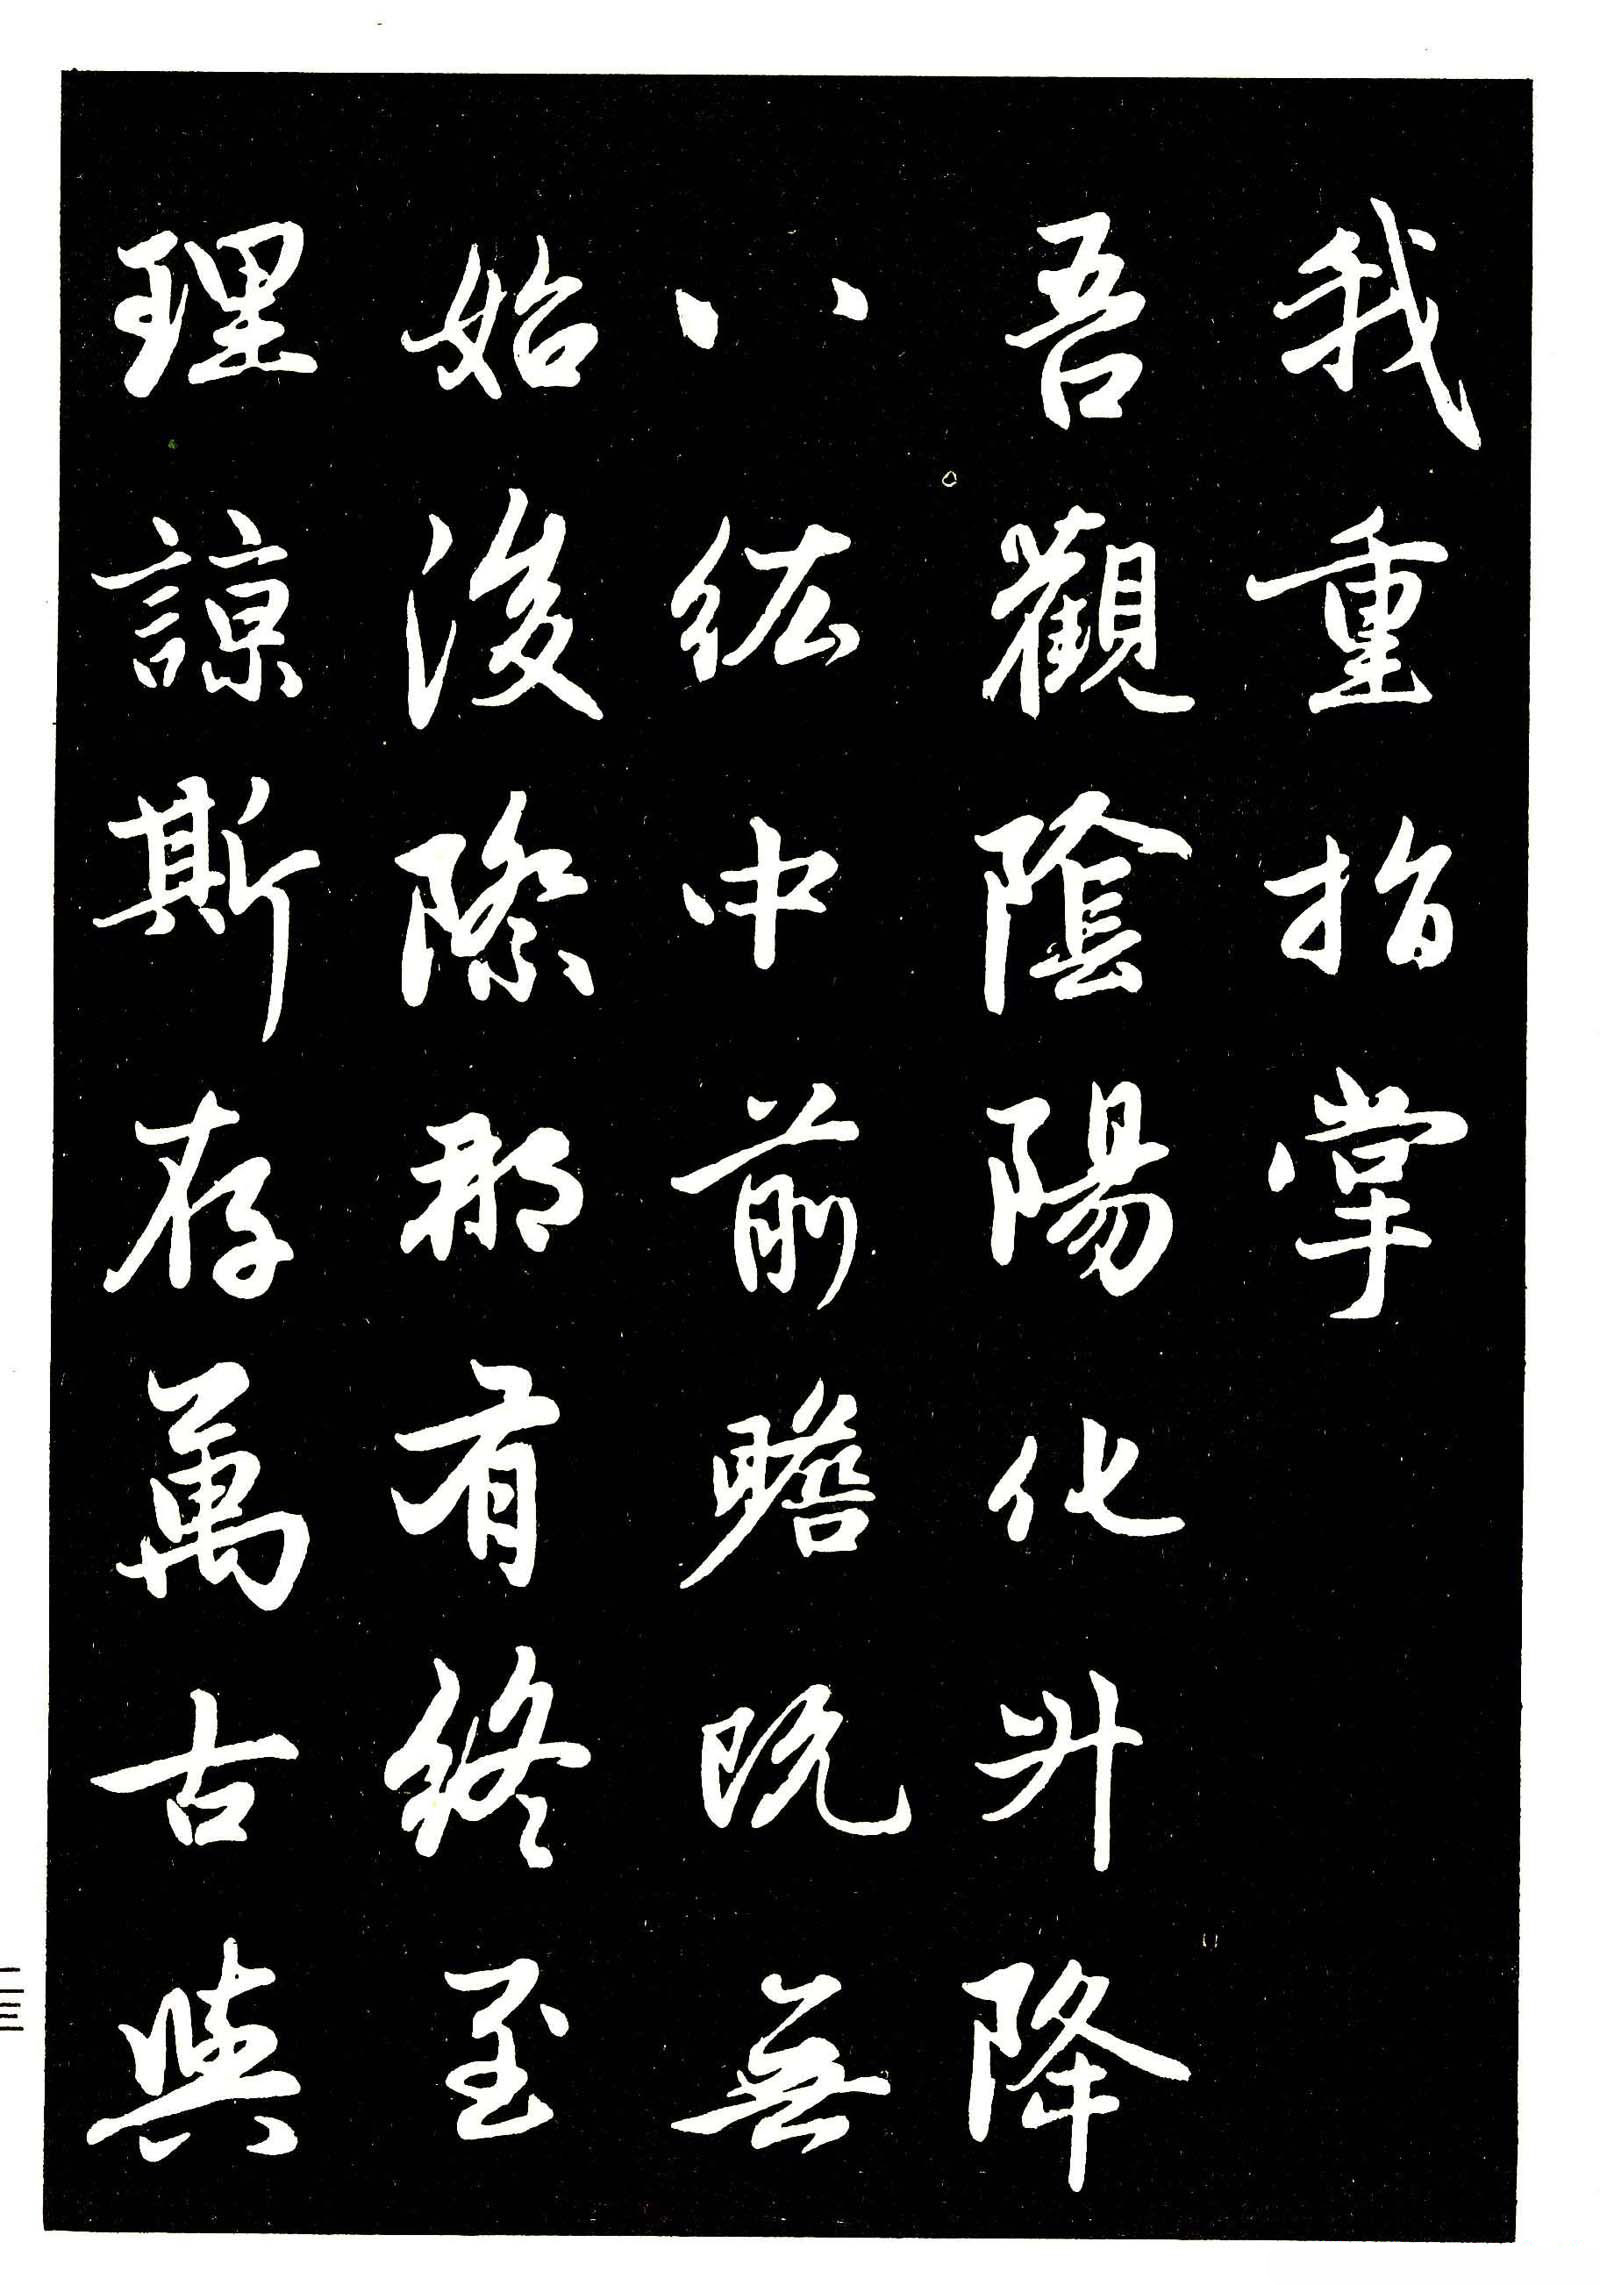 我重指掌
吾觀陰陽化升降
八紘中前瞻既無
始後際那有終至
理諒斯存萬古與
三